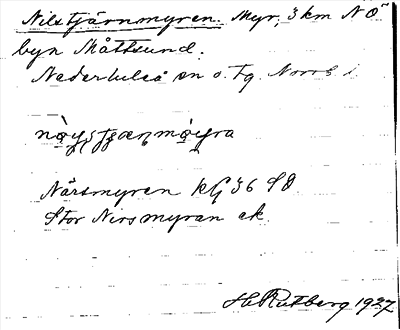 Nilstjärnmyren. Myr, 3 km NO
byn Måttsund.
Nederluleå sn o. tg. Norrb. l.
Närsmyren kG 36 SO.
Stor Nirsmyran ek.
H. Rutberg 1927